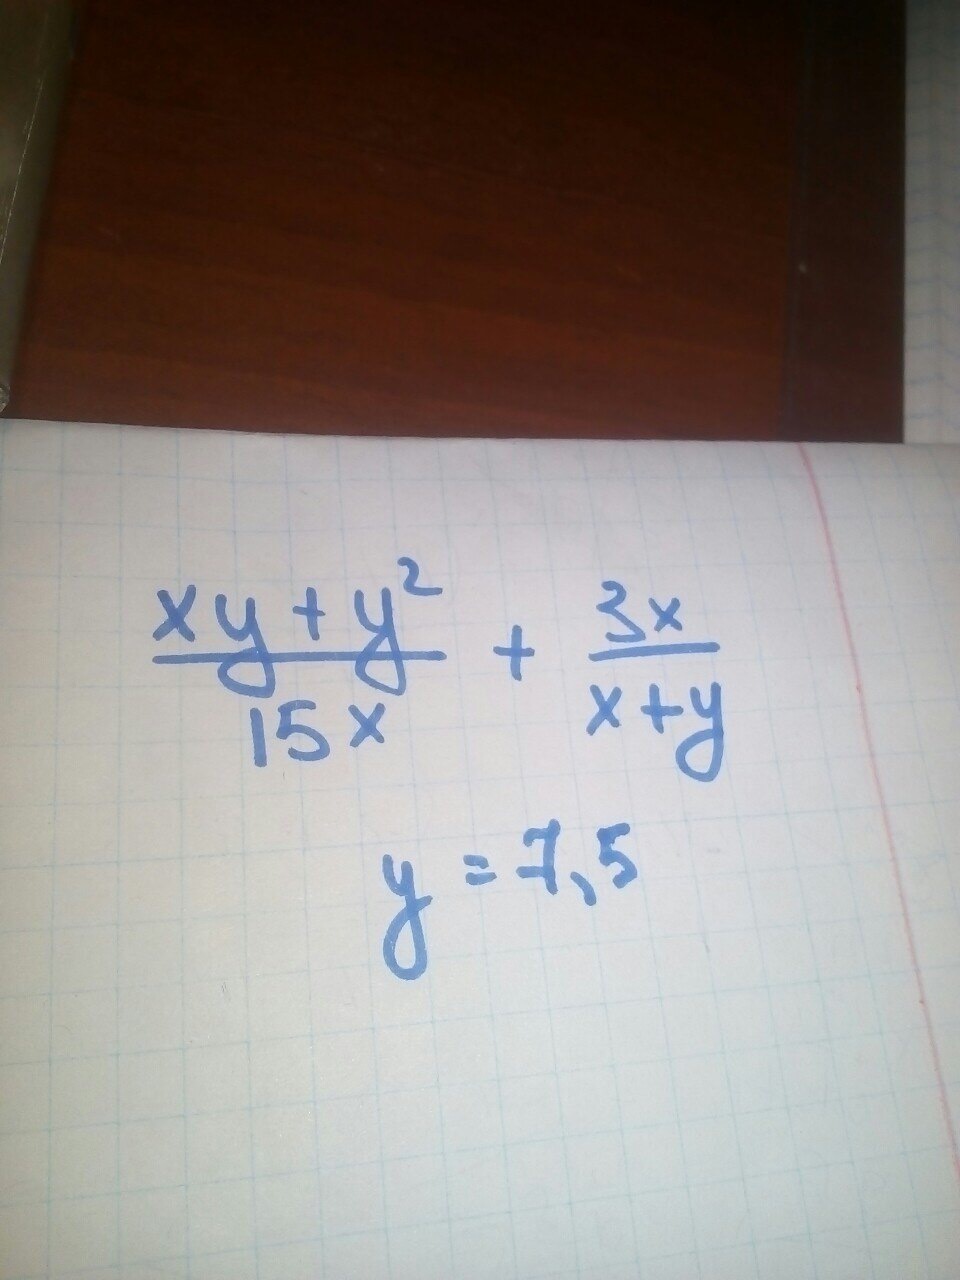 xy + y² / 15x + 3x / x + y
y = 7,5